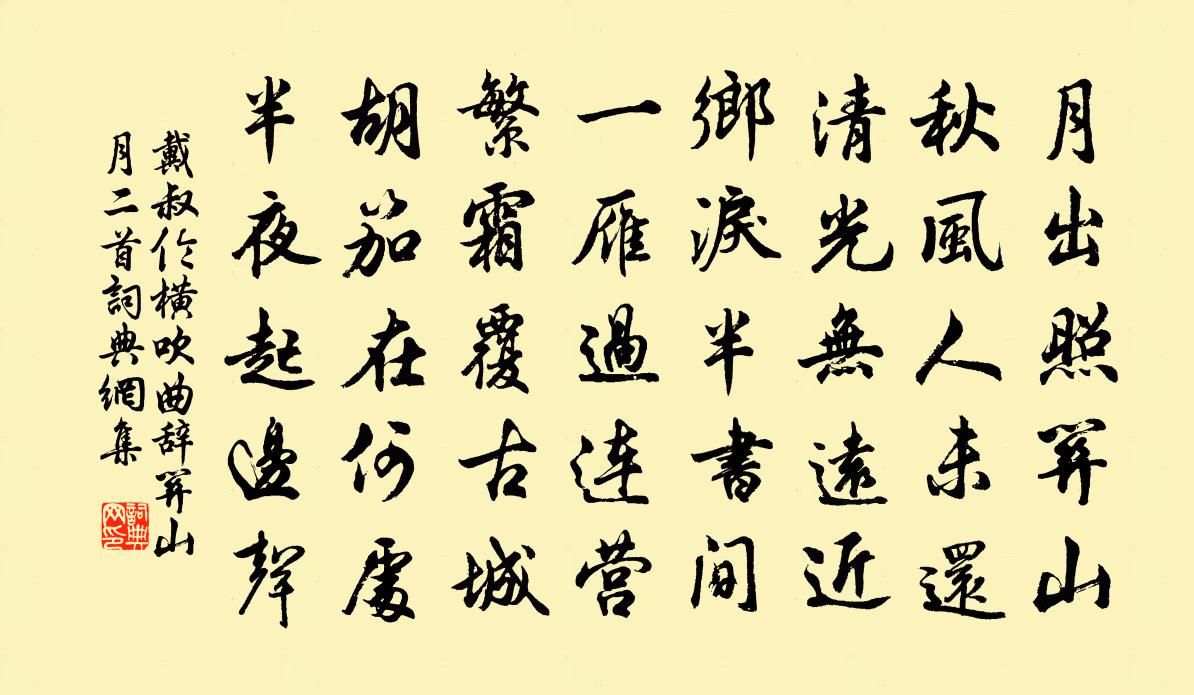 月出照关山
秋風人未還
清光無遠近
鄉淚半書間
一雁過连营
繁霜覆古城
胡笳在何處
半夜起邊聲
戴叔伦橫吹曲辞关山
月二首詞典網集
詞典
网印